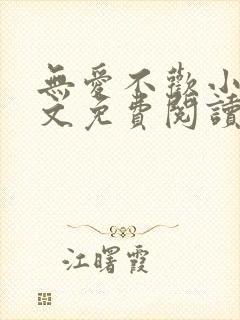 無愛不歡小
文免費閱讀
江曙霞